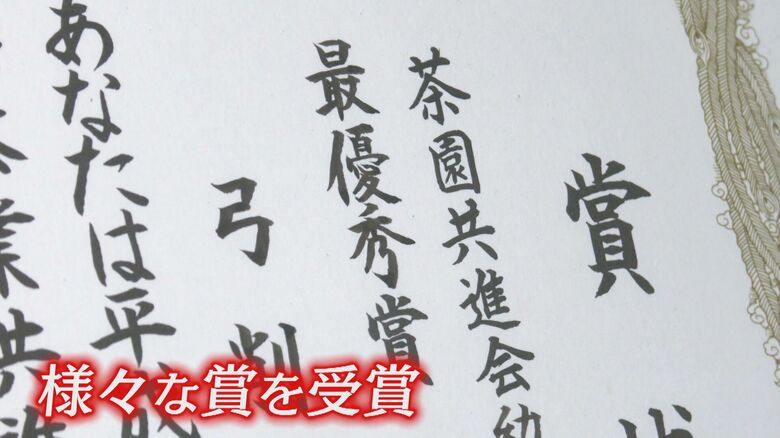 賞
茶園共進会幼
最優秀賞
弓判
あなたは平成
業共進
様々な賞を受賞